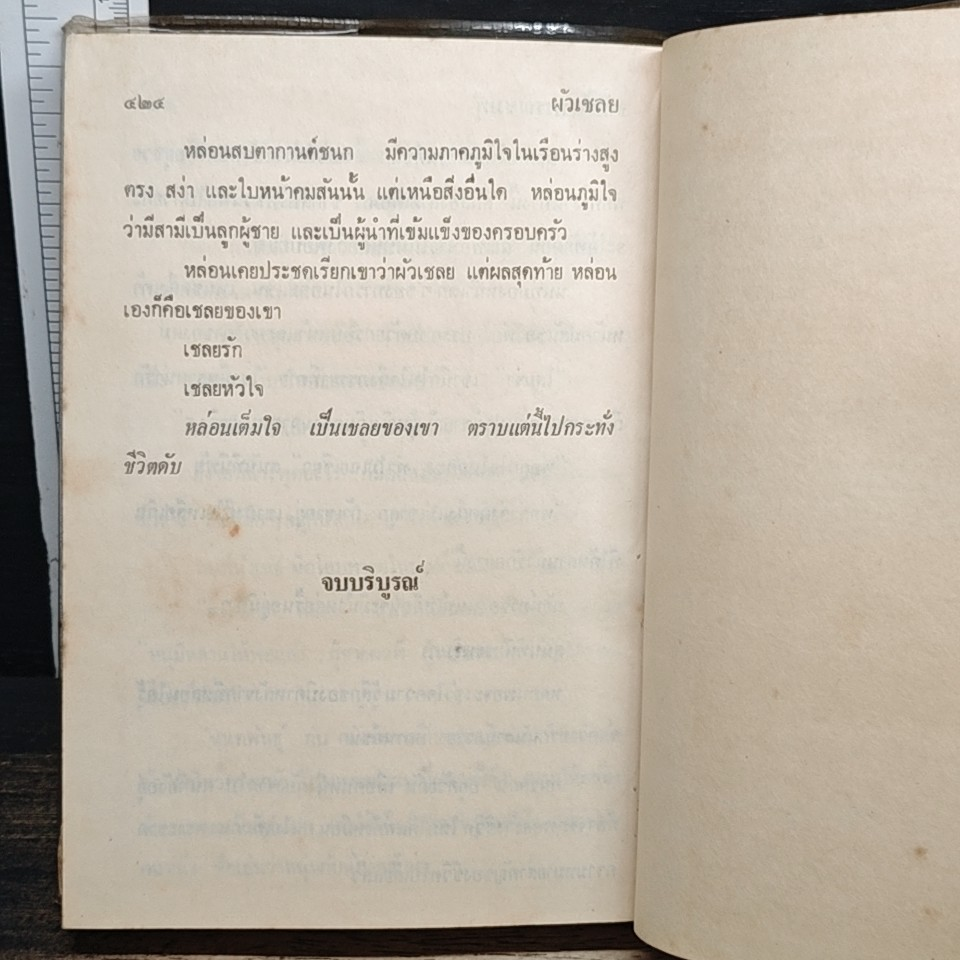 ๔๒๔ ผัวเชลย
หล่อนสบตากานต์ชนก มีความภาคภูมิใจในเรือนร่างสูง
ตรง สง่า และใบหน้าคมสันนั้น แต่เหนือสิ่งอื่นใด หล่อนภูมิใจ
ว่ามีสามีเป็นลูกผู้ชาย และเป็นผู้นำที่เข้มแข็งของครอบครัว
หล่อนเคยประชดเรียกเขาว่าผัวเชลย แต่ผลสุดท้าย หล่อน
เองก็คือเชลยของเขา
เชลยรัก
เชลยหัวใจ
หล่อนเต็มใจ เป็นเชลยของเขา ตราบแต่นี้ไปกระทั่ง
ชีวิตดับ
จบบริบูรณ์